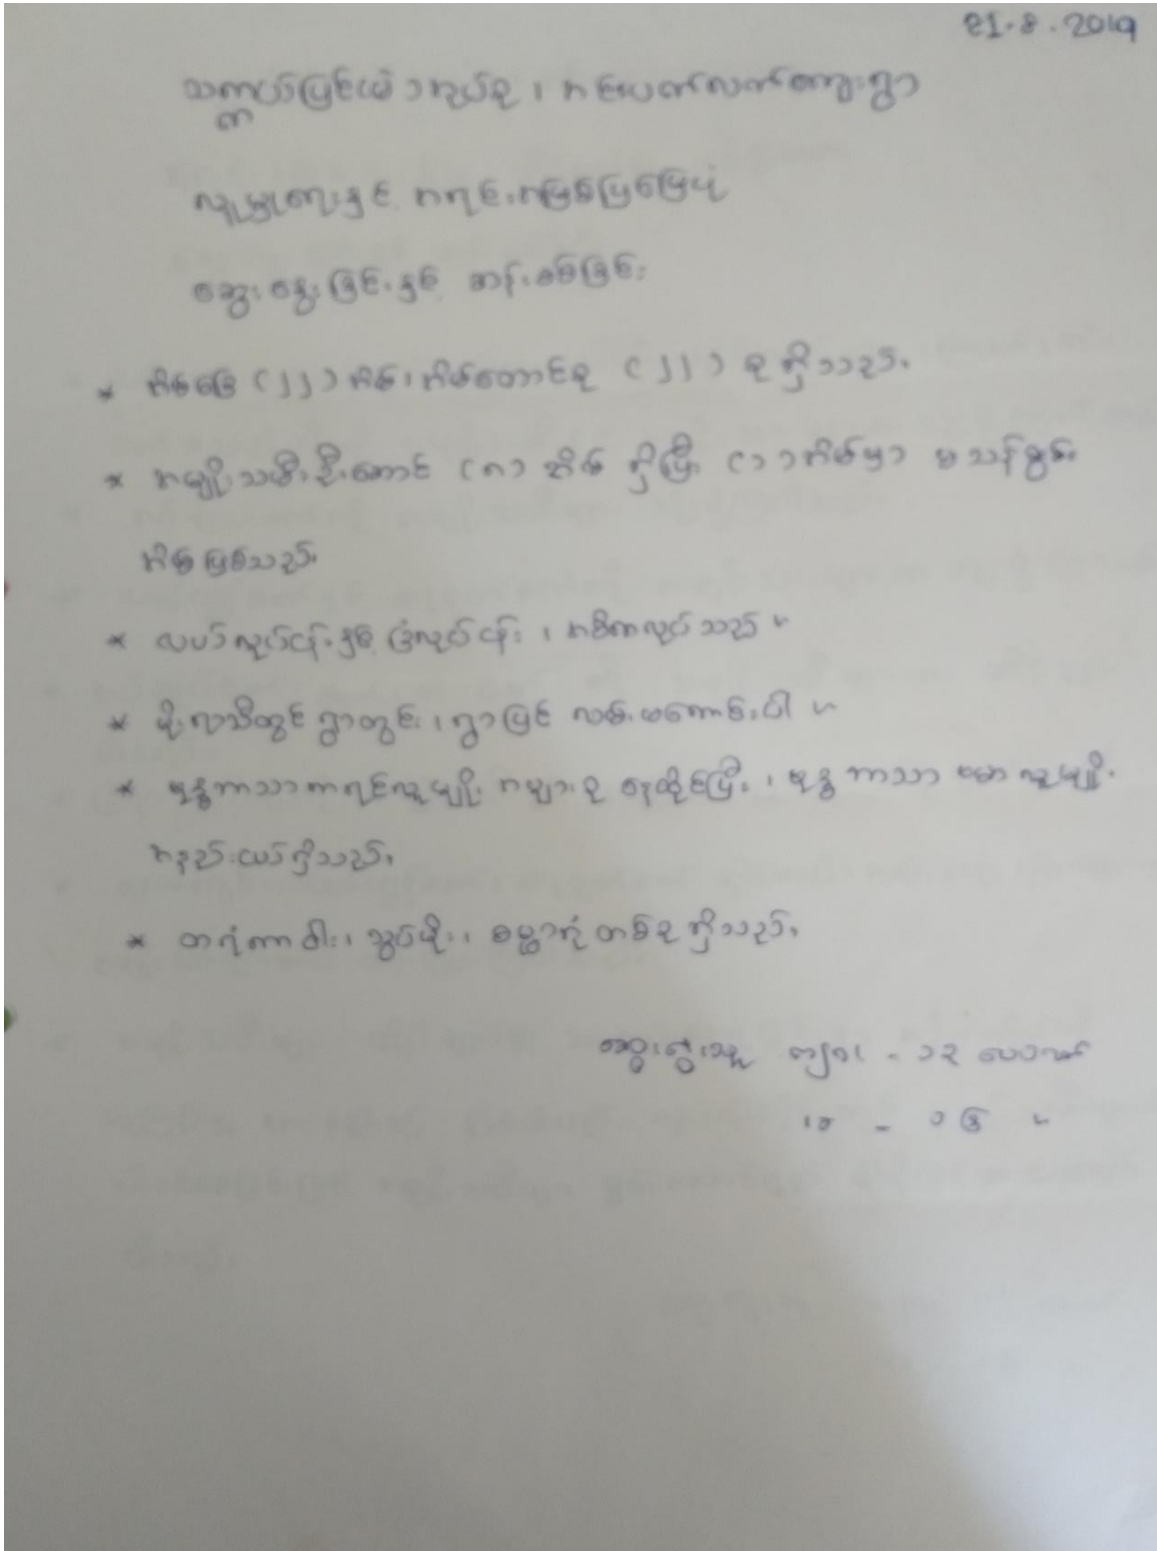 21.8.2019
လူမှုရေးနှင့် အရင်းအမြစ်ပြမြေပုံ
ဆွေးနွေးခြင်းနှင့် ဆန်းစစ်ခြင်း
* အိမ်ခြေ (၂၂) အိမ်၊ အိမ်ထောင်စု (၂၂) စု ရှိသည်။
* အမျိုးသမီးဦးဆောင် (၈) အိမ် ရှိပြီး (၁) အိမ်မှာ မသန်စွမ်း
အိမ် ဖြစ်သည်။
* လယ်လုပ်ငန်းနှင့် ခြံလုပ်ငန်း၊ အဓိကလုပ်သည်။
* မိုးရာသီတွင် ရွာတွင်း၊ ရွာပြင် လမ်းမကောင်းပါ။
* ဗုဒ္ဓဘာသာကရင်လူမျိုး အများစု နေထိုင်ပြီး၊ ဗုဒ္ဓဘာသာ ဗမာလူမျိုး
အနည်းငယ်ရှိသည်။
* တရံတခါ သွပ်မိုး၊ တစ်ခု ရှိသည်။
ဆွေးနွေးသူ ကျား - ၁၃ ယောက်
မ - ၁၆ "